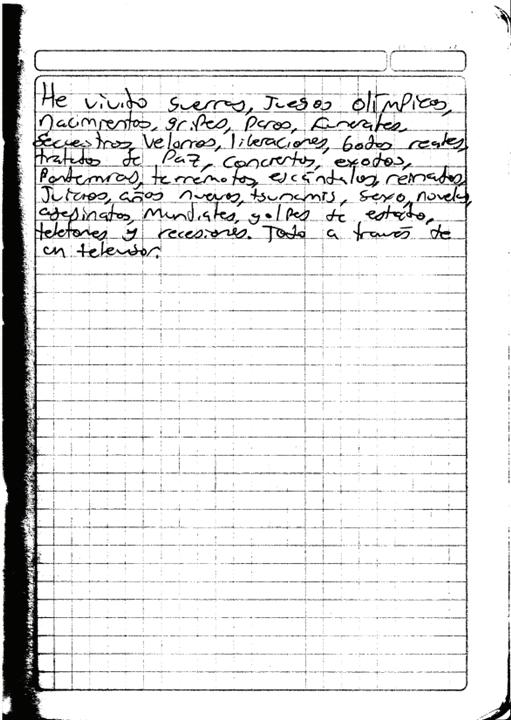 He vivido guerras, Juegos olímpicos,
nacimientos, gripes, paros, funerales,
secuestros, velorios, liberaciones, bodas reales,
tratados de Paz, conciertos, exodos,
Pandemias, terremotos, escándalos, reinados,
Juicios, años nuevos, tsunamis, sexo, novelas,
asesinatos, Mundiales, golpes de estado,
teletones y recesiones. Todo a través de
un televisor.